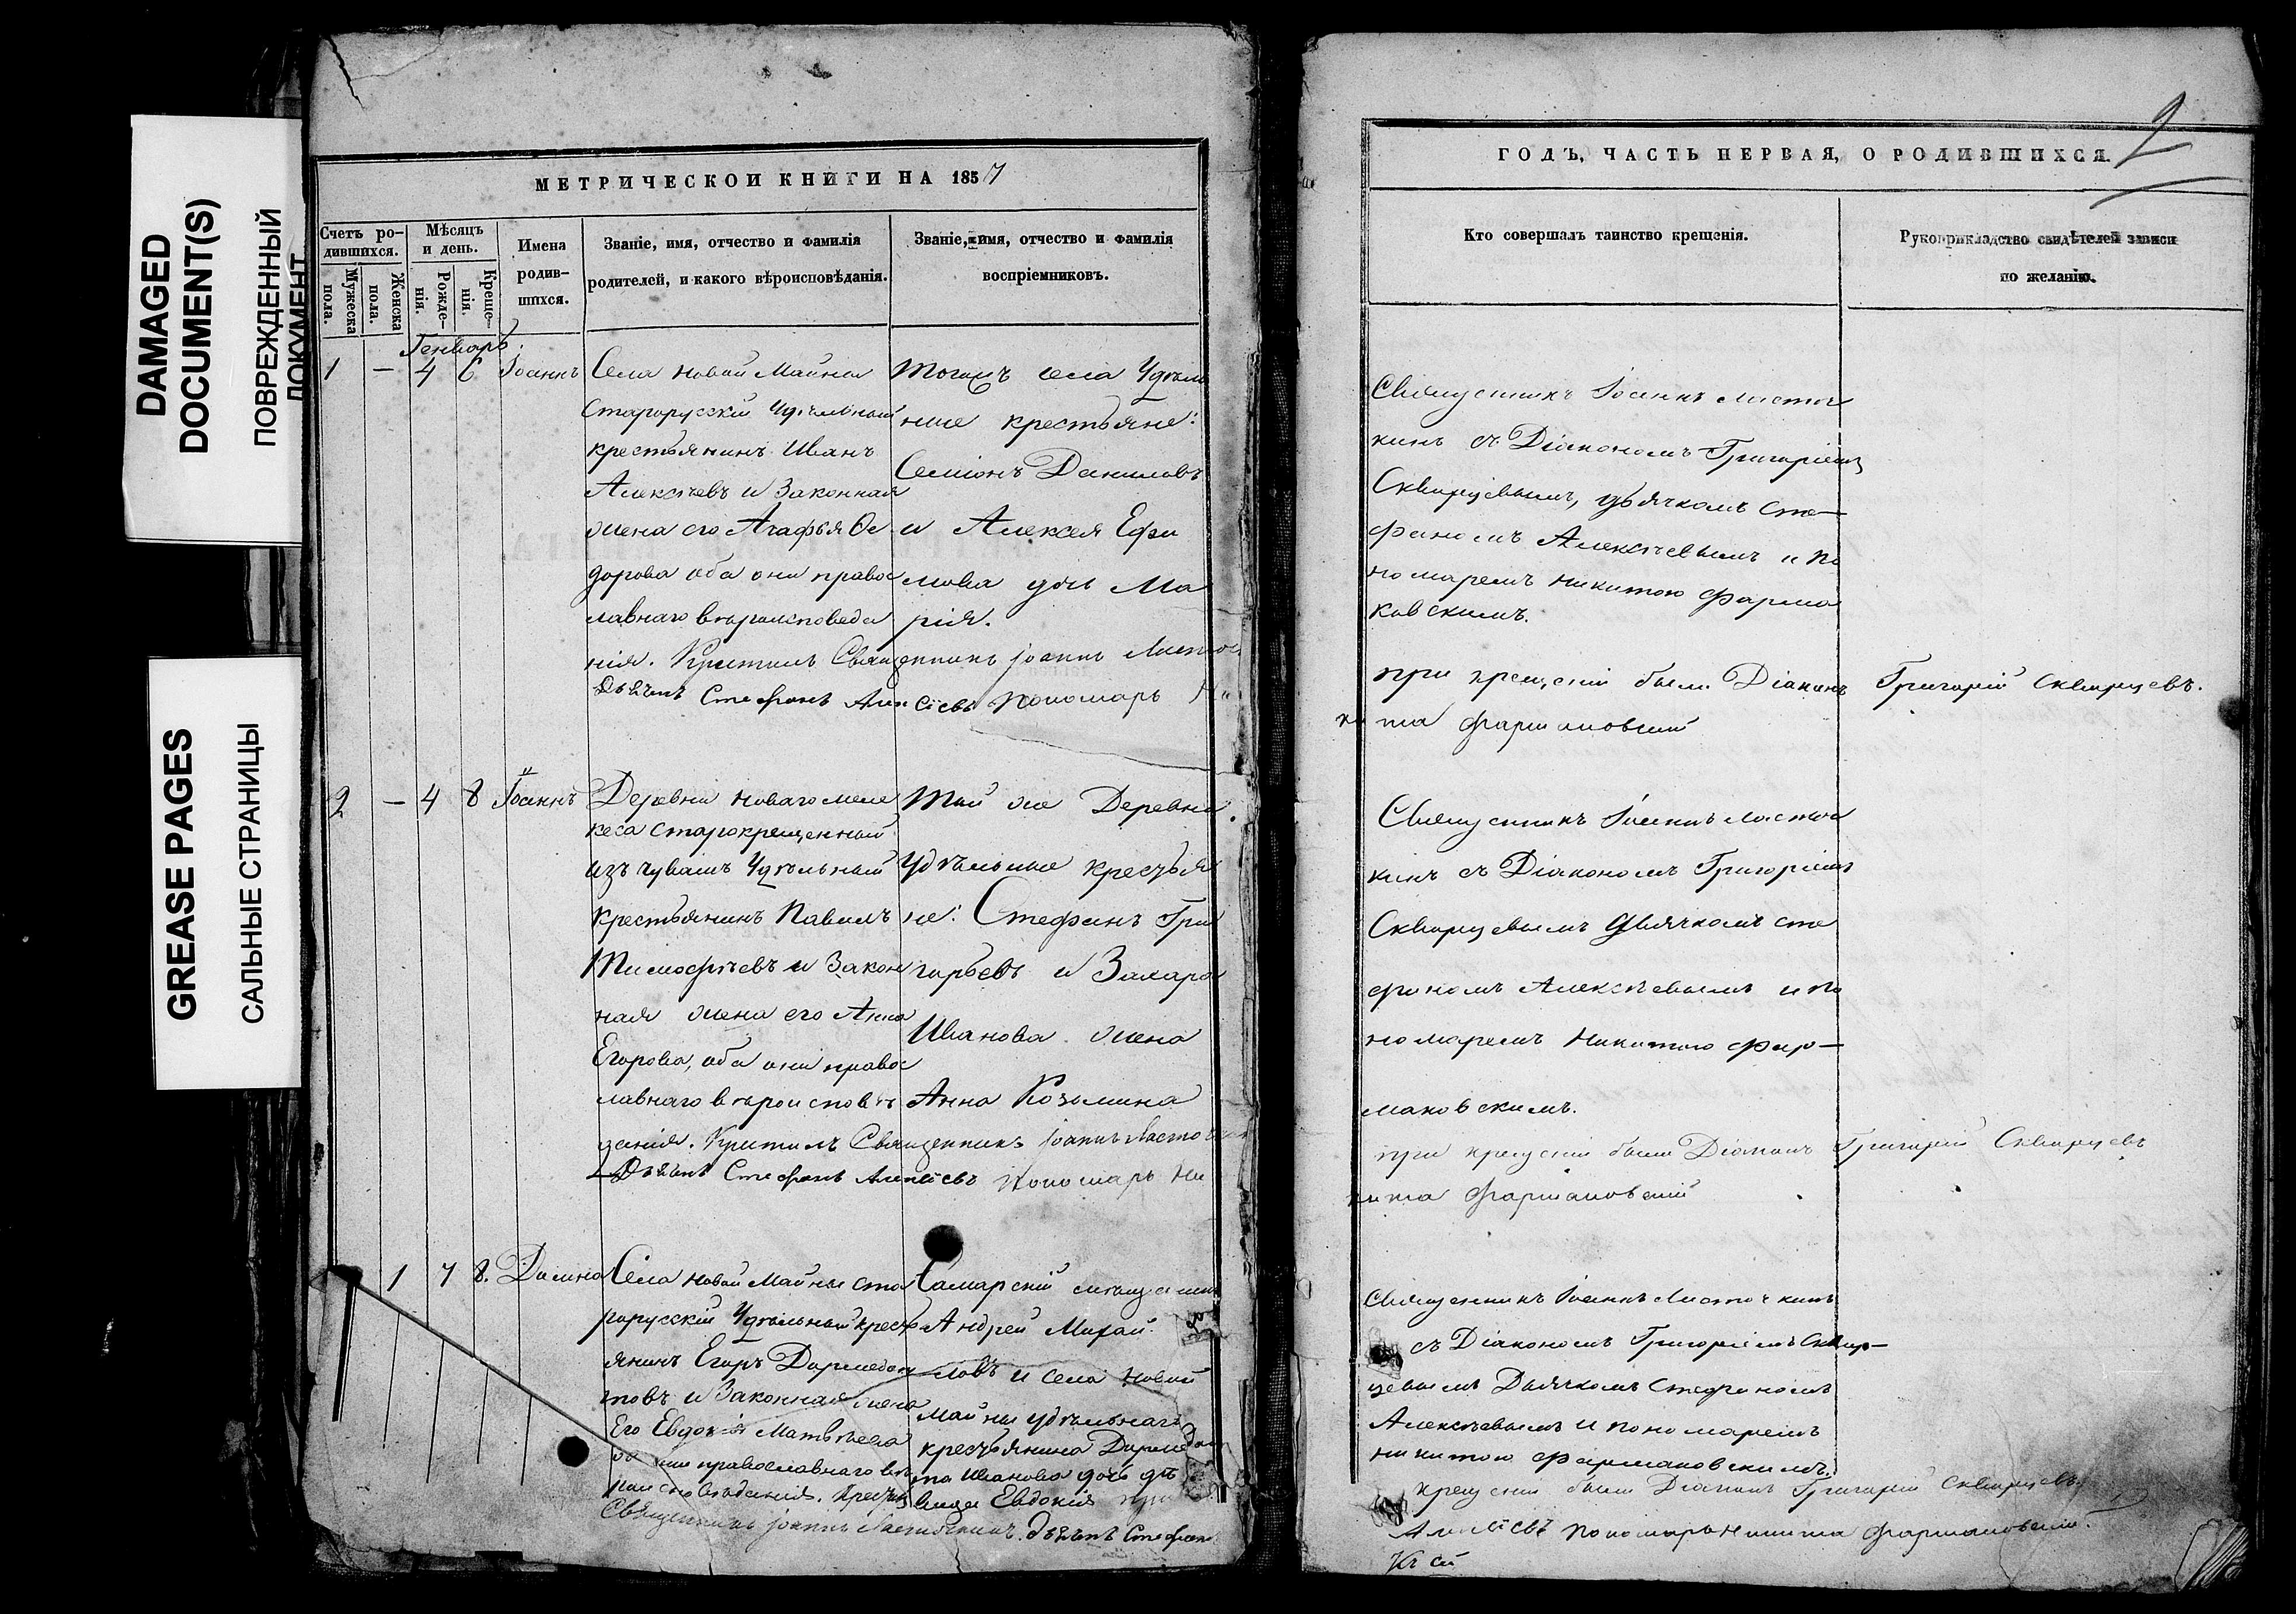 DAMAGED
DOCUMENT(S)
ПОВРЕЖДЕННЫЙ
ДОКУМЕНТ
GREASE PAGES
САЛЬНЫЕ СТРАНИЦЫ
МЕТРИЧЕСКОЙ КНИГИ НА 1857
Счетъ ро-
дившихся.
Мужеска
пола.
Женска
пола.
Мѣсяцъ
и день.
Рожде-
нія.
Креще-
нія.
Имена
родив-
шихся.
Званіе, имя, отчество и фамилія
родителей, и какого вѣроисповѣданія.
Званіе, имя, отчество и фамилія
воспріемниковъ.
Генварь.
1 — 4 6 Іоаннъ
Села Новой Майны
Старорусскій Удѣльный
крестьянинъ Иванъ
Алексѣевъ и Законная
жена его Агафья Ѳе
дорова оба они право
славнаго вѣроисповеда
нія. Крестилъ Священникъ Іоаннъ Ласточ
Дьячекъ Стефанъ Алексіевъ Пономарь Ни
тогожъ села Удѣль
ные крестьяне:
Семіонъ Даниловъ
и Алексея Ефи
мова дочь Ма
рія.
2 — 4 8 Іоаннъ
Деревни Новаго меле
кеса старокрещенный
изъ чувашъ Удѣльный
крестьянинъ Павелъ
Тимофѣевъ и Закон
ная жена его Анна
Егорова, оба они право
славнаго вѣроисповѣ
данія. Крестилъ Священникъ Іоаннъ Ласточ
Дьячекъ Стефанъ Алексіевъ Пономарь Ни
Той же Деревни
Удѣльные крестья
не: Стефанъ Гри
горьевъ и Захара
Иванова жена
Анна Козьмина
1 7 8. Домна
Села Новой Майны ста
рорусскій Удѣльный кресть
янинъ Егоръ Дормедон
товъ и Законная жена
Его Евдокія Матвѣева
они православнаго вѣ
роисповѣданія. Крестилъ
Священникъ Іоаннъ Ласточкинъ. Дьячекъ Стефанъ
Самарскій мѣщанинъ
Андрей Михай
ловъ и села Новой
Майны удѣльнаго
крестьянина Дормедон
та Иванова дочь дѣ
вица Евдокія при
ГОДЪ, ЧАСТЬ ПЕРВАЯ, О РОДИВШИХСЯ.
2
Кто совершалъ таинство крещенія.
Рукоприкладство свидѣтелей записи
по желанію.
Священникъ Іоаннъ Ласточ
кинъ съ Діакономъ Григоріемъ
Скворцевымъ, дьячкомъ Сте—
фаномъ Алексѣевымъ и По
номаремъ Никитою Фарма
ковскимъ.
при крещеніи были Діаконъ Григорій Скворцевъ.
кита Фармаковскій
Священникъ Іоаннъ Ласточ
кинъ съ Діакономъ Григоріемъ
Скворцевымъ Дьячкомъ Сте
фаномъ Алексѣевымъ и По
номаремъ Никитою Фар—
маковскимъ.
при крещеніи были Діаконъ Григорій Скворцевъ
кита Фармаковскій
Священникъ Іоаннъ Ласточкинъ
съ Діакономъ Григоріемъ Сквор—
цевымъ Дьячкомъ Стефаномъ
Алексѣевымъ и пономаремъ
Никитою Фармаковскимъ.
крещеніи были Діаконъ Григорій Скворцевъ
Алексіевъ Пономарь Никита Фармаковскій.